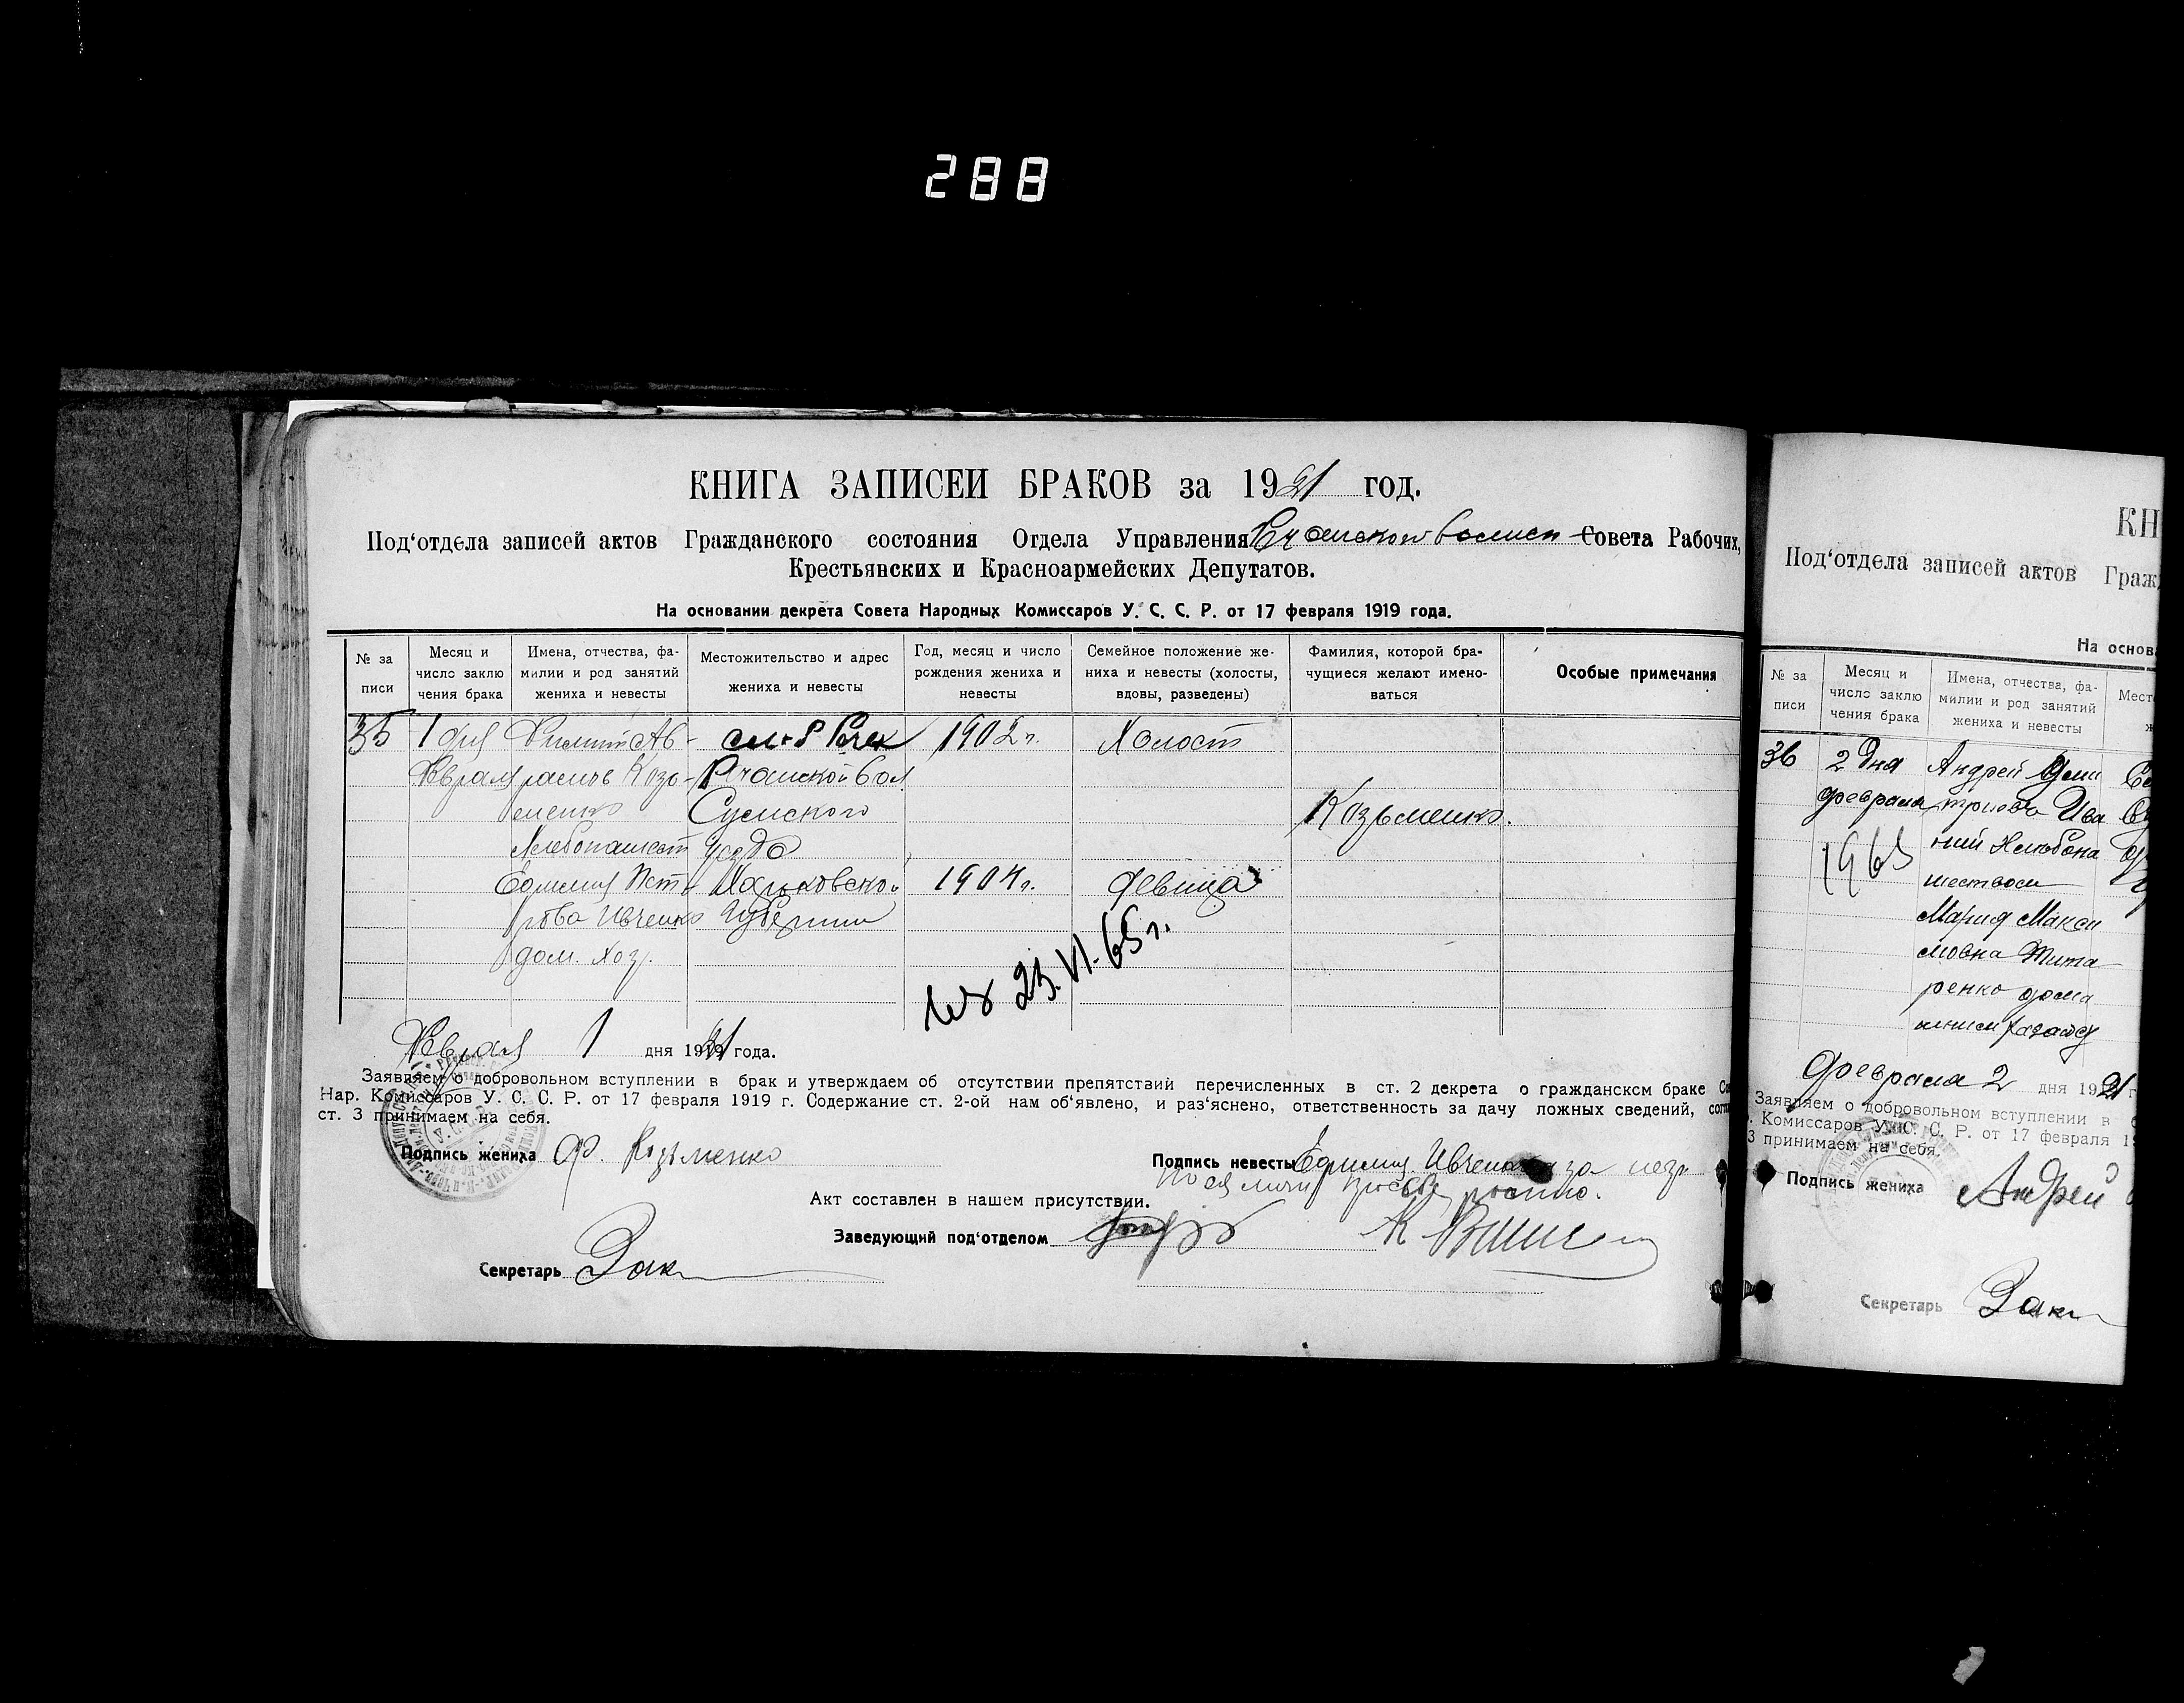 288
КНИГА ЗАПИСЕИ БРАКОВ за 1921 год.
Под‘отдела записей актов Гражданского состояния Отдела Управления Совета Рабочих,
Крестьянских и Красноармейских Депутатов.
На основании декрета Совета Народных Комиссаров У. С. С. Р. от 17 февраля 1919 года.
№ за
писи
Месяц и
число заклю
чения брака
Имена, отчества, фа-
милии и род занятий
жениха и невесты
Местожительство и адрес
жениха и невесты
Год, месяц и число
рождения жениха и
невесты
Семейное положение же-
ниха и невесты (холосты,
вдовы, разведены)
Фамилия, которой бра-
чущиеся желают имено-
ваться
Особые примечания
35 1 дня 1902 г. Холост
Сумского Козьменко.
Хлебопашест Уезда
Ефимия Харьковской 1904 г. девица
Ивченко Губернии
дом. хоз.
23.VI.65 г.
1 дня 1921 года.
Заявляем о добровольном вступлении в брак и утверждаем об отсутствии препятствий перечисленных в ст. 2 декрета о гражданском браке
Нар. Комиссаров У. С. С. Р. от 17 февраля 1919 г. Содержание ст. 2-ой нам об‘явлено, и раз‘яснено, ответственность за дачу ложных сведений,
ст. 3 принимаем на себя.
Подпись жениха Ф. Козьменко
Подпись невесты Ефимия Ивченко а за
Акт составлен в нашем присутствии.
Заведующий под‘отделом
Секретарь Зак
КН
Под‘отдела записей актов Граж
На основ
№ за
писи
Месяц и
число заклю
чения брака
Имена, отчества, фа-
милии и род занятий
жениха и невесты
Мест
36 2 дня Андрей Дми
февраля триевъ Ива
1965
Мария Макси
мовна Тита
ренко дома
февраля 2 дня 1921 г
Заявляем о добровольном вступлении в
. Комиссаров У. С. С. Р. от 17 февраля 19
3 принимаем на себя.
Подпись жениха Андрей
Секретарь Зак